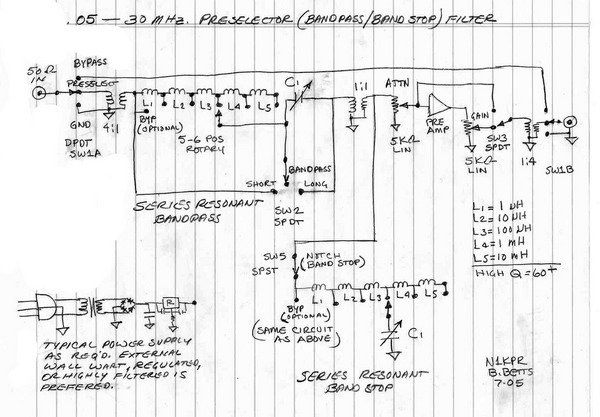 .05 — 30 MHz. PRESELECTOR (BANDPASS/BAND STOP) FILTER
BYPASS
50Ω
IN
PRESELECT
GND
DPDT
SW1A
4:1
L1
L2
L3
L4
L5
BYP
(OPTIONAL)
5-6 POS
ROTARY
C1
1:1
ATTN
5KΩ
LIN
PRE
AMP
GAIN
5KΩ
LIN
SW3
SPDT
1:4
SW1B
BANDPASS
SHORT
LONG
SW2
SPDT
SERIES RESONANT
BANDPASS
L1 = 1 µH
L2 = 10 µH
L3 = 100 µH
L4 = 1 mH
L5 = 10 mH
HIGH Q = 60+
SW5
SPST
(NOTCH
BAND STOP)
L1
L2
L3
L4
L5
BYP
(OPTIONAL)
(SAME CIRCUIT
AS ABOVE)
C1
SERIES RESONANT
BAND STOP
R
TYPICAL POWER SUPPLY
AS REQ'D. EXTERNAL
WALL WART, REGULATED,
OR HIGHLY FILTERED IS
PREFERED.
N1KPR
B.BETTS
7-05